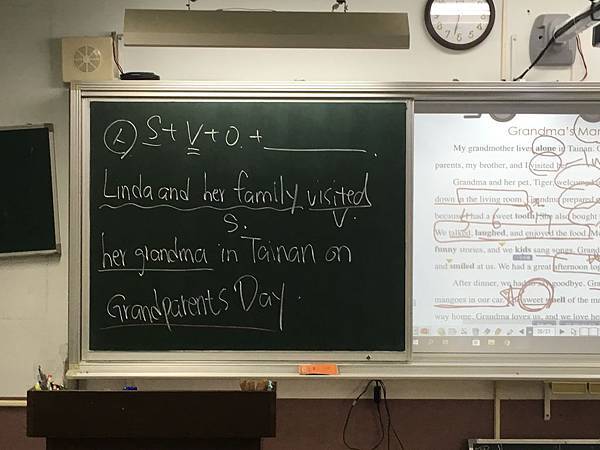 S + V + O. + ________.
Linda and her family visited
S. V.
her grandma in Tainan on
Grandparents' Day.
Grandma's Man
My grandmother lives alone in Tainan.
parents, my brother, and I visited
Grandma and her pet, Tiger, welcomed
down in the living room. Grandma prepared
because I had a sweet tooth. She also bought
We talked, laughed, and enjoyed the food.
funny stories, and we kids sang songs.
and smiled at us. We had a great afternoon
After dinner, we had to say goodbye.
mangoes in our car. The sweet smell of the man
way home. Grandma loves us, and we love he